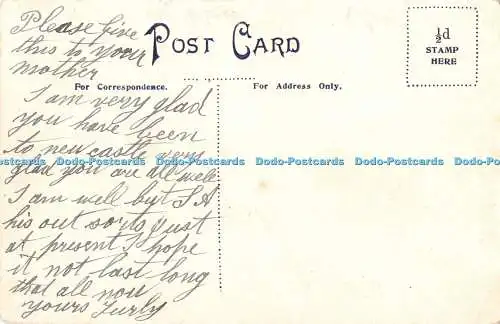 Please give
this to your
mother
POST CARD
½d
STAMP
HERE
For Correspondence.
For Address Only.
I am very glad
you have been
to new castle very
glad you are all well
Dodo-Postcards Dodo-Postcards Dodo-Postcards Dodo-Postcards Dodo-Postcards
I am well but S A
his out sorts just
at present I hope
it not last long
that all now
yours